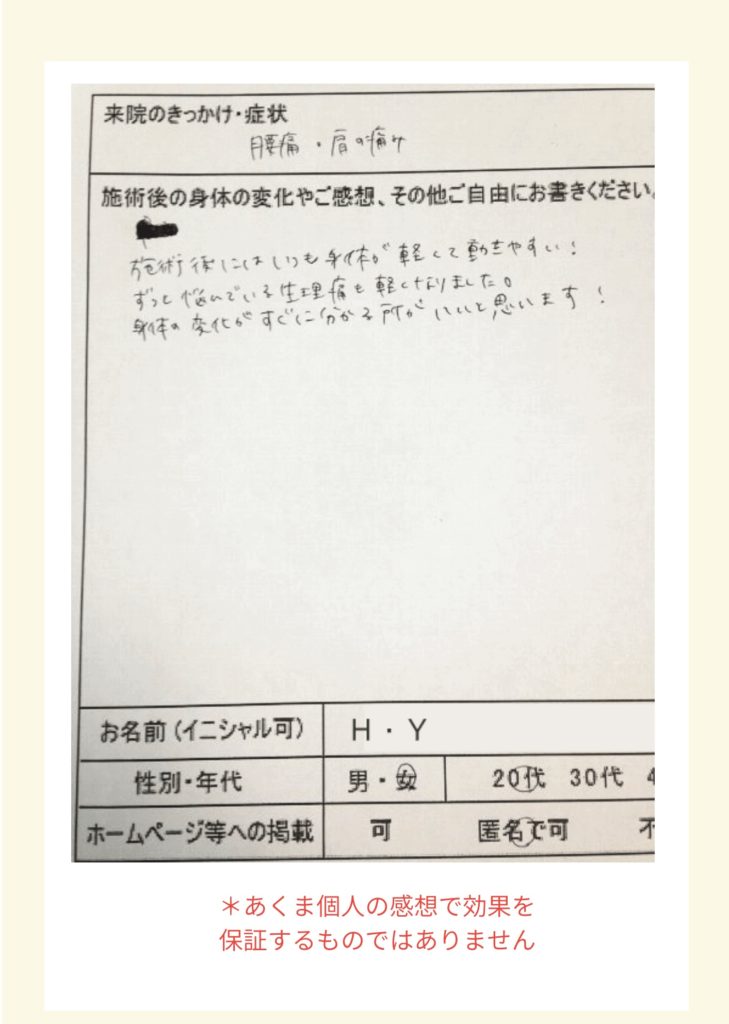 来院のきっかけ・症状
腰痛・肩の痛み
施術後の身体の変化やご感想、その他ご自由にお書きください。
施術後にはいつも身体が軽くて動きやすい！
ずっと悩んでいる生理痛も軽くなりました。
身体の変化がすぐに分かる所がいいと思います！
お名前（イニシャル可） H・Y
性別・年代 男・女 20代 30代 4
ホームページ等への掲載 可 匿名で可 不
＊あくま個人の感想で効果を
保証するものではありません